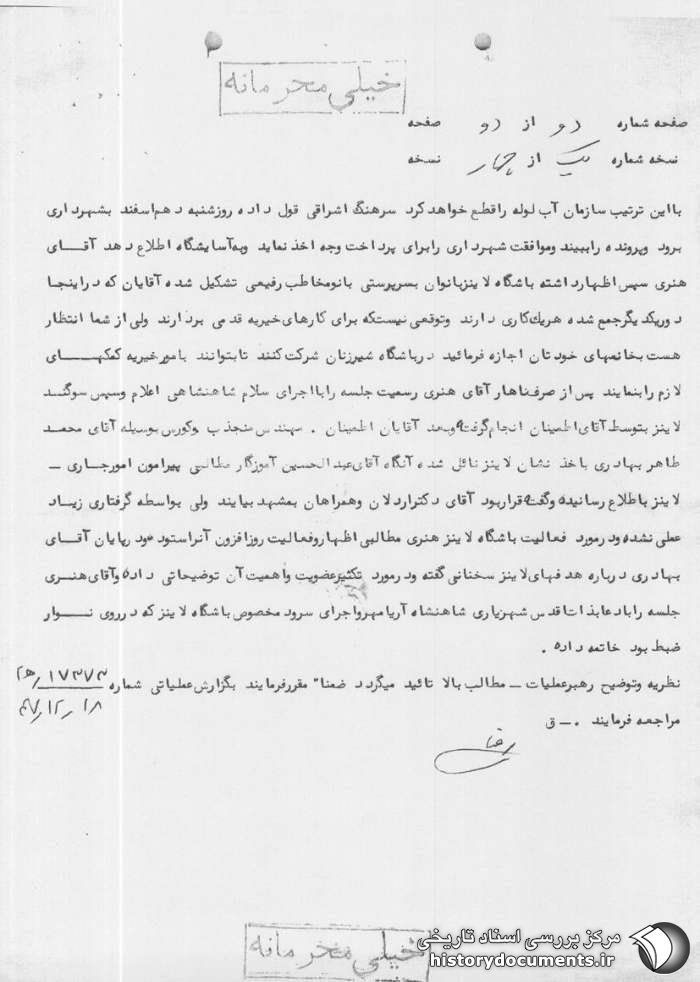 خیلی محرمانه
صفحه شماره دو از دو صفحه
نسخه شماره یک از چهار نسخه
با این ترتیب سازمان آب لوله را قطع خواهد کرد سرهنگ اشراقی قول داده روز شنبه دهم اسفند بشهرداری
برود وپرونده راببیند وموافقت شهرداری رابرای پرداخت وجه اخذ نماید وبه آسایشگاه اطلاع دهد آقای
هنری سپس اظهارداشته باشگاه لاینزبانوان بسرپرستی بانومخاطب رفیعی تشکیل شده آقایان که دراینجا
دوریکدیگرجمع شده هریک کاری دارند وتوقعی نیستکه برای کارهای خیریه قدمی بردارند ولی از شما انتظار
هست بخانمهای خودتان اجازه فرمائید درباشگاه شیرزنان شرکت کنند تابتوانند بامورخیریه کمکهای
لازم رابنمایند پس از صرف ناهار آقای هنری رسمیت جلسه رابااجرای سلام شاهنشاهی اعلام وسپس سوگند
لاینز بتوسط آقای اطمینان انجام گرفته وبعد آقایان اطمینان . مهندس منجذب وکورس بوسیله آقای محمد
طاهر بهادری باخذ نشان لاینز نائل شده آنگاه آقای عبدالحسین آموزگار مطالبی پیرامون امورجاری –
لاینز باطلاع رسانیده وگفته قراربود آقای دکتراردلان وهمراهان بمشهد بیایند ولی بواسطه گرفتاری زیاد
عملی نشده ودرمورد فعالیت باشگاه لاینز هنری مطالبی اظهاروفعالیت روزافزون آنراستوده ودرپایان آقای
بهادری درباره هدفهای لاینز سخنانی گفته ودرمورد تکثیرعضویت واهمیت آن توضیحاتی داده وآقای هنری
جلسه رابادعابذات اقدس شهریاری شاهنشاه آریامهرواجرای سرود مخصوص باشگاه لاینز که درروی نوار
ضبط بود خاتمه داده .
نظریه وتوضیح رهبرعملیات – مطالب بالا تائید میگردد ضمنا" مقررفرمایند بگزارش عملیاتی شماره ۱۷۳۷۳/ه‍۲
۴۷/۱۲/۱۸
مراجعه فرمایند . – ق
خیلی محرمانه
مرکز بررسی اسناد تاریخی
historydocuments.ir